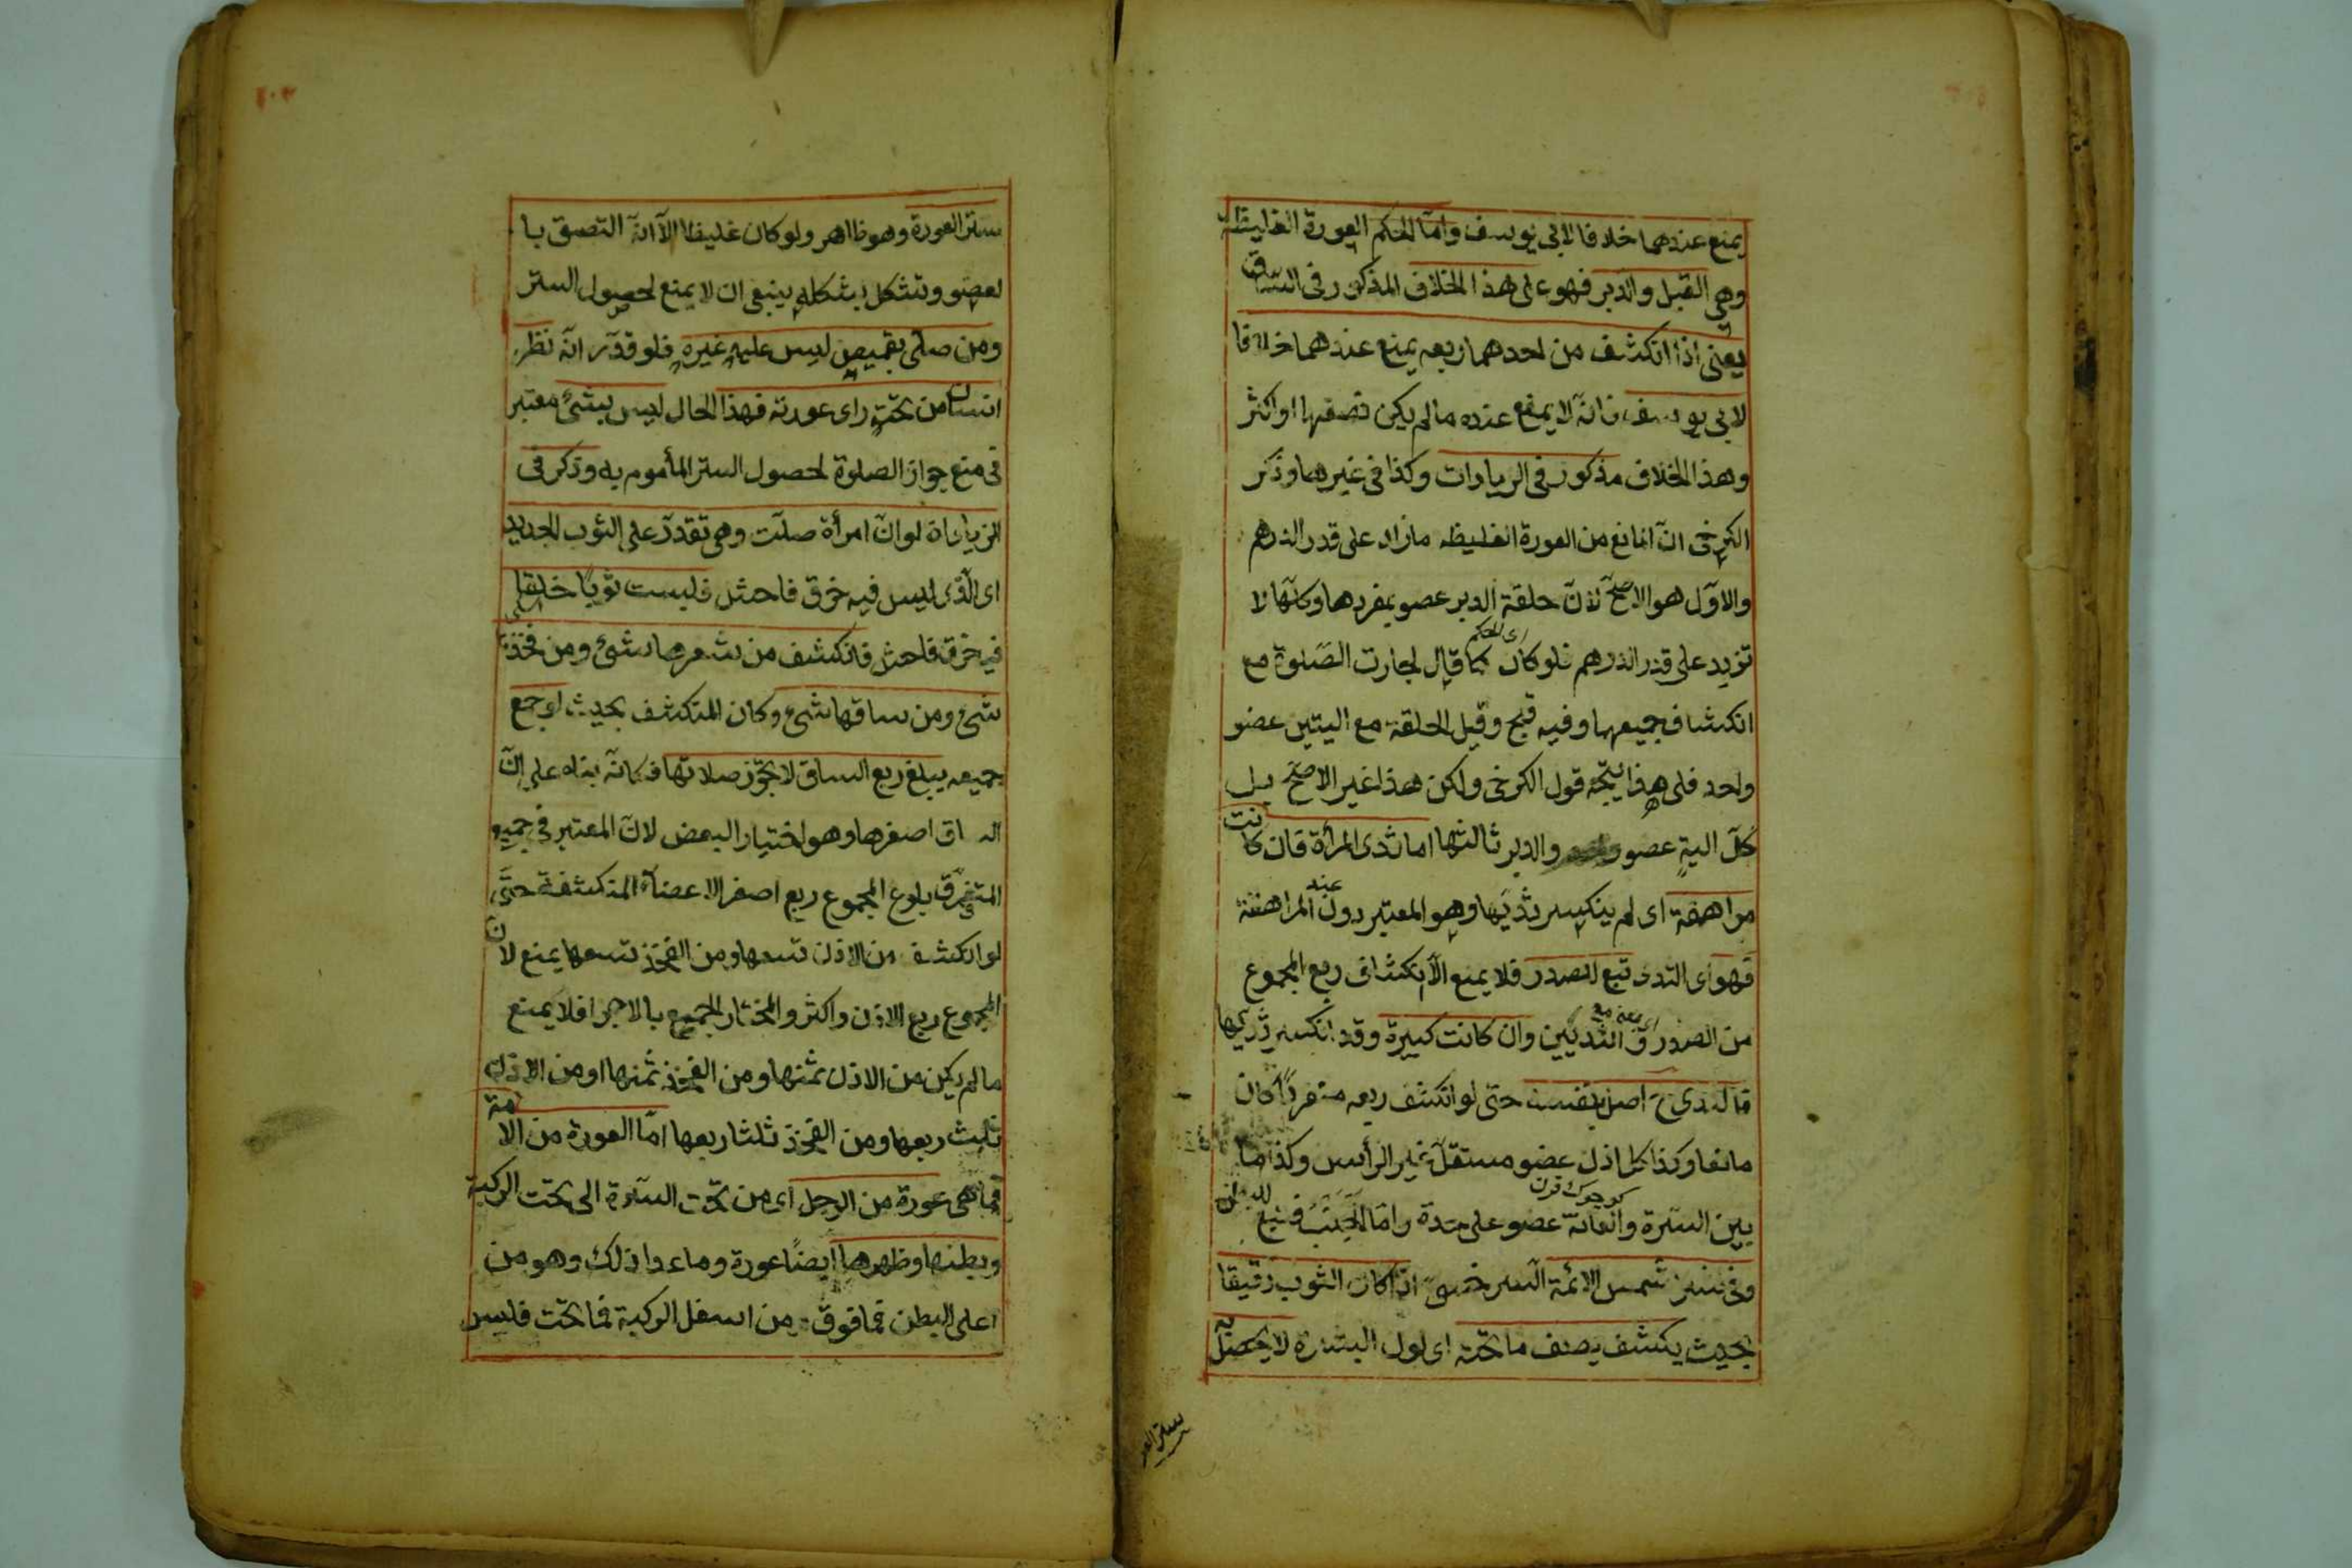 يمنع عندهما خلافا لابى يوسف واما الحكم العورة الغليظة
وهى القبل والدبر فهو على هذا الخلاف المذكور فى الساق
يعنى اذا انكشف من احدهما ربعه يمنع عندهما خلافا
لابى يوسف فانه لا يمنع عنده ما لم يكن نصفها او اكثر
وهذا الخلاف مذكور فى الزيادات وكذا فى غيرها وذكر
الكرخى ان المانع من العورة الغليظه مازاد على قدر الدرهم
والاول هو الاصح لان حلقة الدبر عضو بمفردها وكلها لا
تزيد على قدر الدرهم فلو كان كما قال لجازت الصلوة مع
اى الحكم
انكشاف جميعها وفيه قبح وقيل الحلقة مع اليتين عضو
واحد فلى هذا يتجه قول الكرخى ولكن هذا غير الاصح بل
كل الية عضو والدبر ثالثها اما ثدى المرأة فان كانت
مراهقة اى لم ينكسر ثديها وهو المعتبر دون المراهقة
عند
فهو اى الثدى تبع للصدر فلا يمنع الا انكشاف ربع المجموع
من الصدر والثديين وان كانت كبيرة وقد انكسر ثدييها
فالثدى ح اصل بنفسه حتى لو انكشف ربعه منفردا كان
مانعا وكذا كل اذن عضو مستقل غير الرأس وكذا ما
بين السرة والعانة عضو على حدة واما الجنب فتبع للبطن
وفى شمس الائمة السرخسى اذا كان الثوب رقيقا
بحيث يكشف يصف ما تحته اى لون البشرة لا يحصل به
ستر العو
ستر العورة وهو ظاهر ولو كان غليظا الا انه التصق با
لعضو وتشكل بشكله ينبغى ان لا يمنع لحصول الستر
ومن صلى بقميص ليس عليه غيره فلو قدر انه نظر
انسان من تحته راى عورته فهذا الحال ليس بشئ معتبر
فى منع جواز الصلوة لحصول الستر المأمور به وذكر فى
الزيادات لو ان امرأة صلت وهى تقدر على الثوب الجديد
اى الذى ليس فيه خرق فاحش فلبست ثوبا خلقا
فيه خرق فاحش فانكشف من شعرها شئ ومن فخذ
شئ ومن ساقها شئ وكان المنكشف بحيث لو جمع
جميعه يبلغ ربع الساق لا يجوز صلاتها فكانه بناه على ان
الساق اصغرها وهو اختيار البعض لان المعتبر فى جميع
المتفرق بلوغ المجموع ربع اصغر الاعضاء المنكشفة حتى
لو انكشف من الاذن تسعها ومن الفخذ تسعها يمنع لان
المجموع ربع الاذن واكثر والمختار الجميع بالاجزا فلا يمنع
ما لم يكن من الاذن ثمنها ومن الفخذ ثمنها او من الاذن
ثلث ربعها ومن الفخذ ثلثا ربعها اما العورة من الامة
فما هى عورة من الرجل اى من تحت السرة الى تحت الركبة
وبطنها وظهرها ايضا عورة وما عدا ذلك وهو من
اعلى البطن فما فوق ومن اسفل الركبة فما تحت فليس